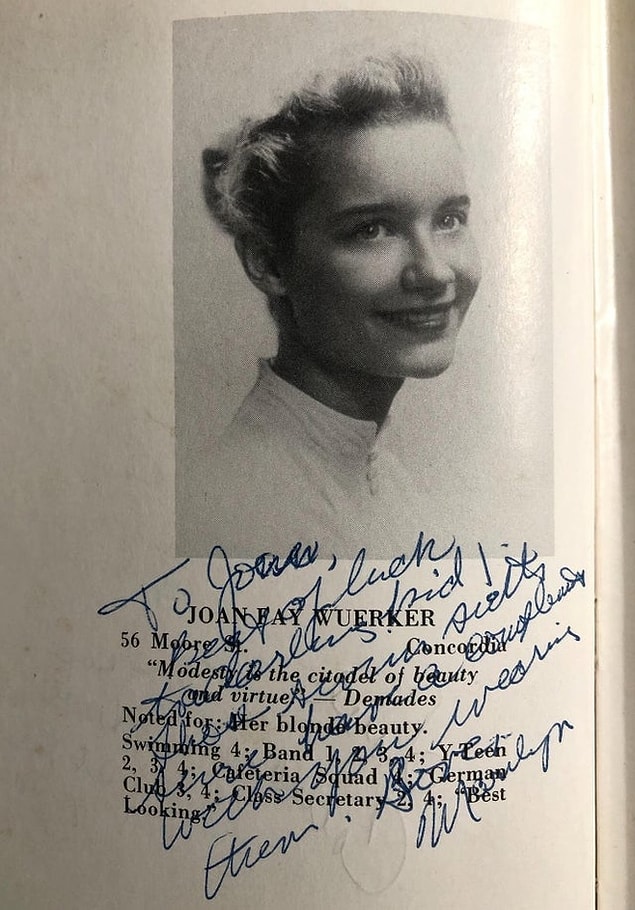 To Joan,
Best of luck
to a darling kid! it
JOAN FAY WUERKER
56 Moore St. Concordia
"Modesty is the citadel of beauty
and virtue" — Demades
Noted for: Her blonde beauty.
Swimming 4; Band 1, 2, 3, 4; Y-Teen
2, 3, 4; Cafeteria Squad 4; German
Club 3, 4; Class Secretary 2, 4; "Best
Looking."
with you wearing
them. Love
Marilyn